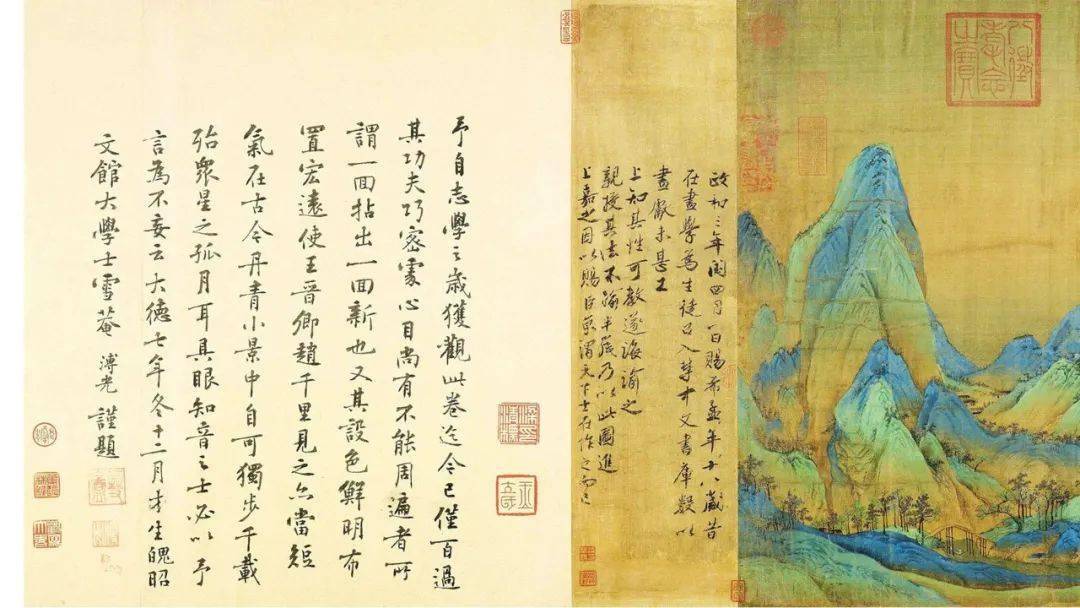 八徵耄念之寶
政和三年閏四月一日賜希孟年十八歲昔
在畫學爲生徒召入禁中文書庫數以
畫獻未甚工
上知其性可教遂誨諭之
親授其法不踰半歲乃以此圖進
上嘉之因以賜臣京謂天下士在作之而已
予自志學之歲獲觀此卷迄今已僅百過
其功夫巧密處心目尚有不能周遍者所
謂一回拈出一回新也又其設色鮮明布
置宏遠使王晉卿趙千里見之亦當短
氣在古今丹青小景中自可獨步千載
殆衆星之孤月耳具眼知音之士必以予
言為不妄云大德七年冬十二月才生魄昭
文館大學士雪菴溥光謹題